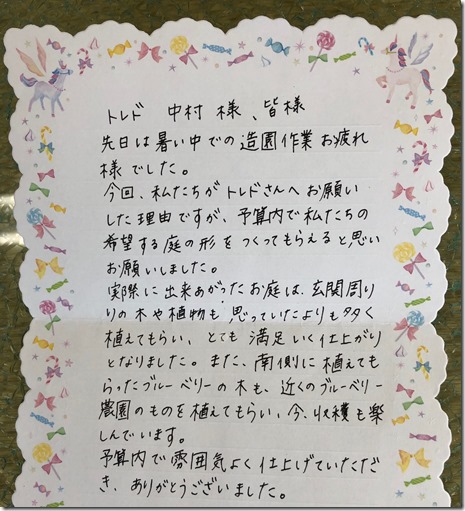 トレド 中村様、皆様
先日は暑い中での造園作業お疲れ
様でした。
今回、私たちがトレドさんへお願い
した理由ですが、予算内で私たちの
希望する庭の形をつくってもらえると思い
お願いしました。
実際に出来あがったお庭は、玄関周り
りの木や植物も思っていたよりも多く
植えてもらい、とても満足いく仕上がり
となりました。また、南側に植えても
らったブルーベリーの木も、近くのブルーベリー
農園のものを植えてもらい、今、収穫も楽
しんでいます。
予算内で雰囲気よく仕上げていただだ
き、ありがとうございました。